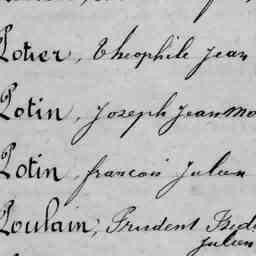 Potier, Théophile Jean
Potin, Joseph Jean Mo
Potin, francois Julien
Poulain, Prudent
Julien